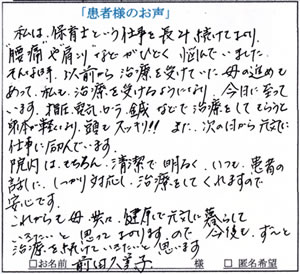 「患者様のお声」
私は、保育士という仕事を長年続けており、
"腰痛"や肩こりなどがひどく悩んでいました。
そんな時、以前から治療を受けていた母の進めも
あって、私も治療を受けるようになり、今日に至って
います。指圧、電気、ロ-ラ、鍼などで治療をしてもらうと
身体が軽くなり、頭もスッキリ!!また、次の日から元気に
仕事に向かえています。
院内はもちろん清潔で明るく、いつも患者の
話に、しっかり対応し、治療をしてくれますので
安心です。
これからも母共々、健康で元気に暮らして
いきたいと思っておりますので、今後も、ずっと
治療を続けていきたいと思います
□お名前 前田久美子 様 □匿名希望